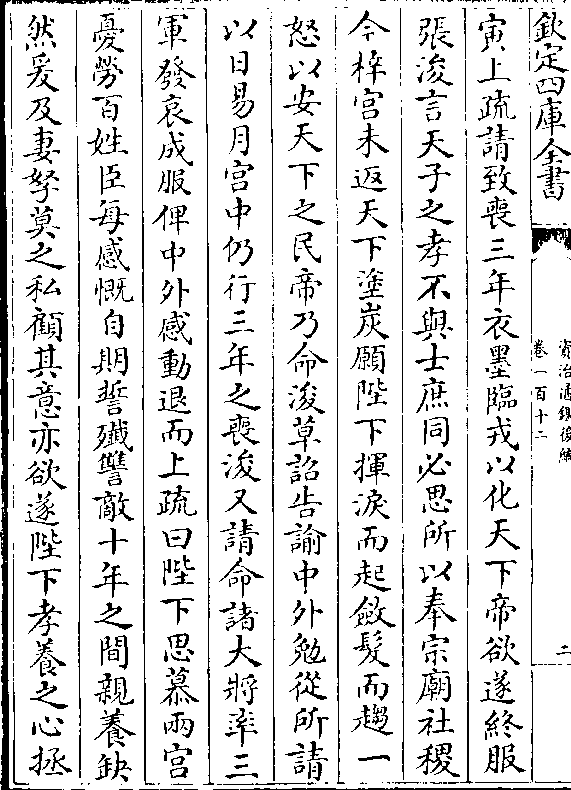 欽定四庫全書
資治通鑑後編
卷一百十二
二
寅上疏請致喪三年衣墨臨戎以化天下帝欲遂終服
張浚言天子之孝不與士庶同必思所以奉宗廟社稷
今梓宮未返天下塗炭願陛下揮淚而起斂髮而趨一
怒以安天下之民帝乃命浚草詔告諭中外勉從所請
以日易月宮中仍行三年之喪浚又請命諸大將率三
軍發哀成服俾中外感動退而上疏曰陛下思慕兩宮
憂勞百姓臣每感慨自期誓殲讐敵十年之間親養缺
然爰及妻孥莫之私顧其意亦欲遂陛下孝養之心拯